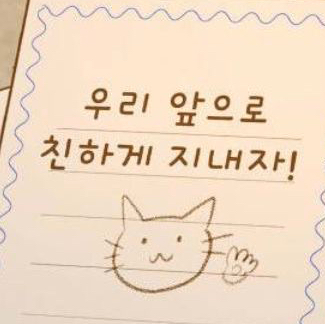 우리 앞으로
친하게 지내자!